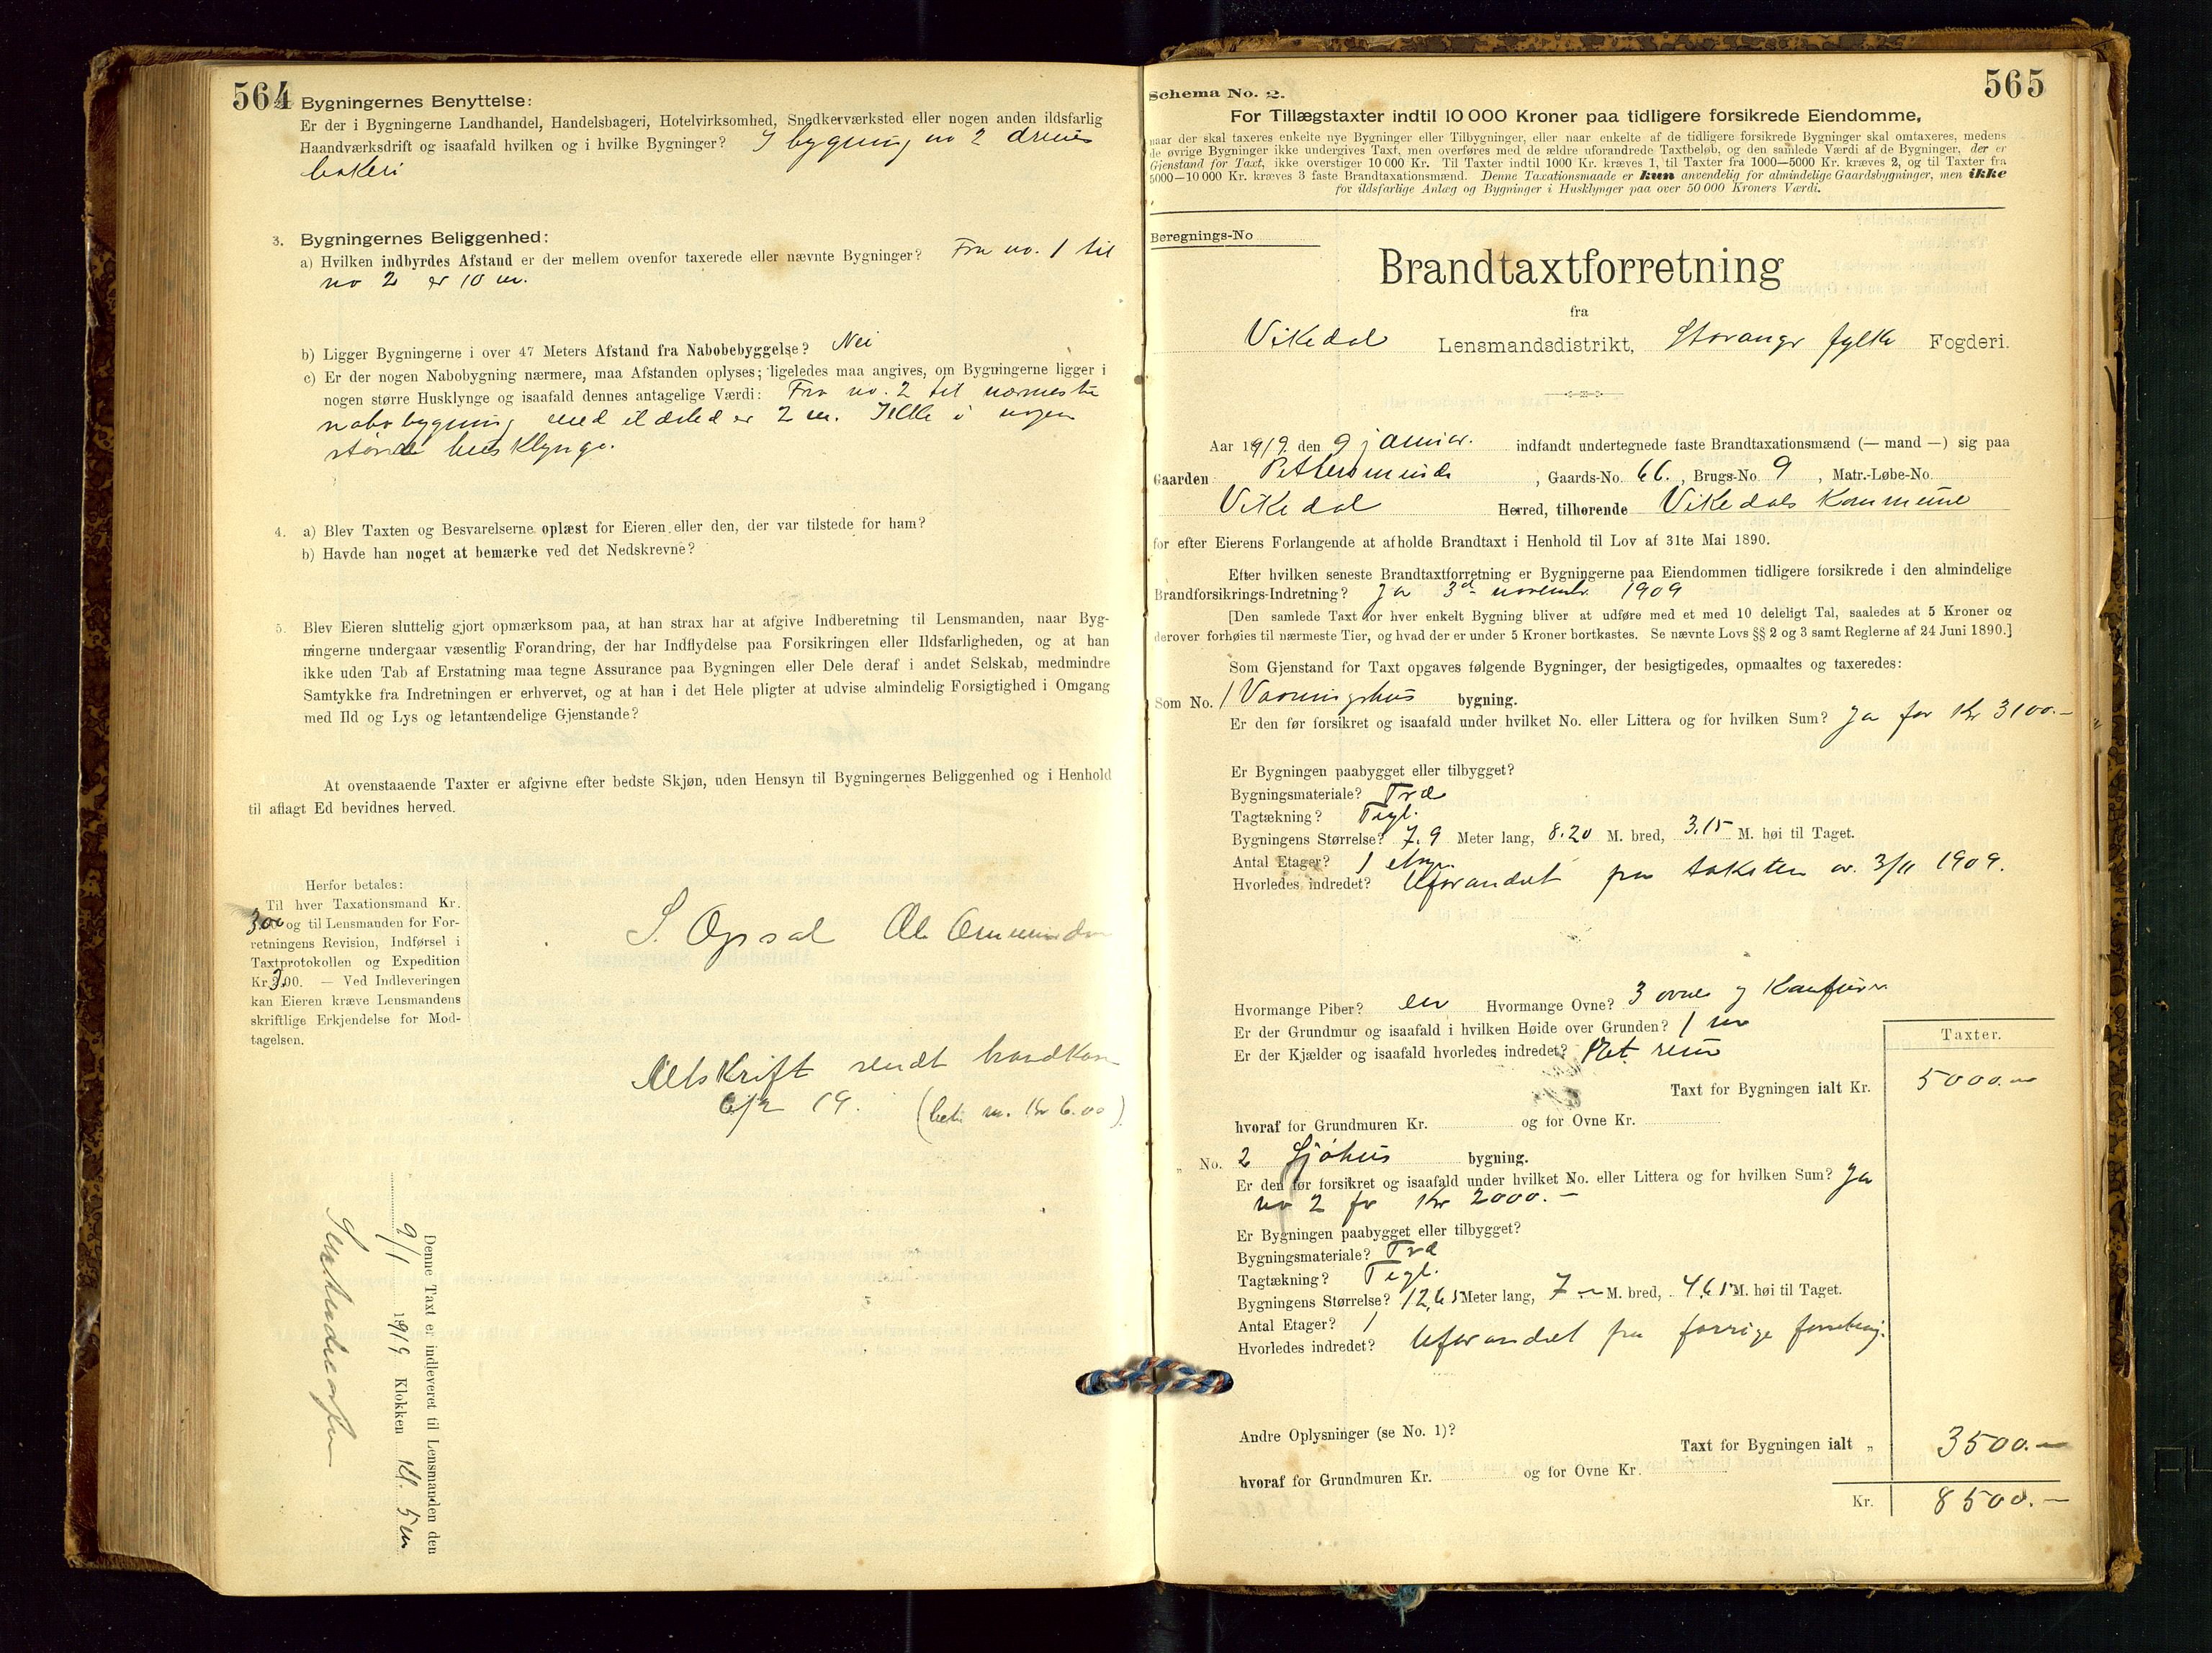 564
Bygningernes Benyttelse:
Er der i Bygningerne Landhandel, Handelsbageri, Hotelvirksomhed, Snedkerværksted eller nogen anden ildsfarlig
Haandværksdrift og isaafald hvilken og i hvilke Bygninger? I bygning no 2 drives
bakeri
3. Bygningernes Beliggenhed:
a) Hvilken indbyrdes Afstand er der mellem ovenfor taxerede eller nævnte Bygninger? Fra no. 1 til
no 2 er 10 m.
b) Ligger Bygningerne i over 47 Meters Afstand fra Nabobebyggelse? Nei
c) Er der nogen Nabobygning nærmere, maa Afstanden oplyses; ligeledes maa angives, om Bygningerne ligger i
nogen større Husklynge og isaafald dennes antagelige Værdi: Fra no. 2 til nærmeste
nabobygning med ildsted er 2 m. Ikke i nogen
større husklynge.
4. a) Blev Taxten og Besvarelserne oplæst for Eieren eller den, der var tilstede for ham?
b) Havde han noget at bemærke ved det Nedskrevne?
5. Blev Eieren sluttelig gjort opmærksom paa, at han strax har at afgive Indberetning til Lensmanden, naar Byg-
ningerne undergaar væsentlig Forandring, der har Indflydelse paa Forsikringen eller Ildsfarligheden, og at han
ikke uden Tab af Erstatning maa tegne Assurance paa Bygningen eller Dele deraf i andet Selskab, medmindre
Samtykke fra Indretningen er erhvervet, og at han i det Hele pligter at udvise almindelig Forsigtighed i Omgang
med Ild og Lys og letantændelige Gjenstande?
At ovenstaaende Taxter er afgivne efter bedste Skjøn, uden Hensyn til Bygningernes Beliggenhed og i Henhold
til aflagt Ed bevidnes herved.
Herfor betales:
Til hver Taxationsmand Kr.
3.00 og til Lensmanden for For-
retningens Revision, Indførsel i
Taxtprotokollen og Expedition
Kr. 3.00. — Ved Indleveringen
kan Eieren kræve Lensmandens
skriftlige Erkjendelse for Mod-
tagelsen.
S. Opsal Ole Ommundsen
Utskrift sendt brandkon
6/2 19. (bet. m. Kr 6.00)
Denne Taxt er indleveret til Lensmanden den
9/1 1919 Klokken Kl. 5 em
565
Schema No. 2.
For Tillægstaxter indtil 10 000 Kroner paa tidligere forsikrede Eiendomme,
naar der skal taxeres enkelte nye Bygninger eller Tilbygninger, eller naar enkelte af de tidligere forsikrede Bygninger skal omtaxeres, medens
de øvrige Bygninger ikke undergives Taxt, men overføres med de ældre uforandrede Taxtbeløb, og den samlede Værdi af de Bygninger, der er
Gjenstand for Taxt, ikke overstiger 10 000 Kr. Til Taxter indtil 1000 Kr. kræves 1, til Taxter fra 1000—5000 Kr. kræves 2, og til Taxter fra
5000—10 000 Kr. kræves 3 faste Brandtaxationsmænd. Denne Taxationsmaade er kun anvendelig for almindelige Gaardsbygninger, men ikke
for ildsfarlige Anlæg og Bygninger i Husklynger paa over 50 000 Kroners Værdi.
Beregnings-No
Brandtaxtforretning
fra
Vikedal Lensmandsdistrikt, Stavanger fylke Fogderi.
Aar 1919 den 9 januar. indfandt undertegnede faste Brandtaxationsmænd (— mand —) sig paa
Gaarden Pettersminde, Gaards-No. 66., Brugs-No 9, Matr.-Løbe-No
Vikedal Herred, tilhørende Vikedals Kommune
for efter Eierens Forlangende at afholde Brandtaxt i Henhold til Lov af 31te Mai 1890.
Efter hvilken seneste Brandtaxtforretning er Bygningerne paa Eiendommen tidligere forsikrede i den almindelige
Brandforsikrings-Indretning? Ja 3d novembr. 1909
[Den samlede Taxt for hver enkelt Bygning bliver at udføre med et med 10 deleligt Tal, saaledes at 5 Kroner og
derover forhøies til nærmeste Tier, og hvad der er under 5 Kroner bortkastes. Se nævnte Lovs §§ 2 og 3 samt Reglerne af 24 Juni 1890.]
Som Gjenstand for Taxt opgaves følgende Bygninger, der besigtigedes, opmaaltes og taxeredes:
Som No. 1 Vaaningshus bygning.
Er den før forsikret og isaafald under hvilket No. eller Littera og for hvilken Sum? Ja for Kr 3100.—
Er Bygningen paabygget eller tilbygget?
Bygningsmateriale? Træ
Tagtækning? Tegl.
Bygningens Størrelse? 7.9 Meter lang, 8.20 M. bred, 3.15 M. høi til Taget.
Antal Etager? 1 etage
Hvorledes indredet? Uforandret fra taksten av 3/11 1909.
Hvormange Piber? en Hvormange Ovne? 3 ovner og Komfurer
Er der Grundmur og isaafald i hvilken Høide over Grunden? 1 m
Er der Kjælder og isaafald hvorledes indredet? Et rum
Taxter.
Taxt for Bygningen ialt Kr. 5000.—
hvoraf for Grundmuren Kr. og for Ovne Kr.
„ No. 2 Sjøhus bygning.
Er den før forsikret og isaafald under hvilket No. eller Littera og for hvilken Sum? Ja
no 2 for Kr 2000.—
Er Bygningen paabygget eller tilbygget?
Bygningsmateriale? Træ
Tagtækning? Tegl.
Bygningens Størrelse? 12,65 Meter lang, 7 — M. bred, 4,65 M. høi til Taget.
Antal Etager? 1
Hvorledes indredet? Uforandret fra forrige forretning.
Andre Oplysninger (se No. 1)?
Taxt for Bygningen ialt „ 3500.—
hvoraf for Grundmuren Kr. og for Ovne Kr.
Kr. 8500.—